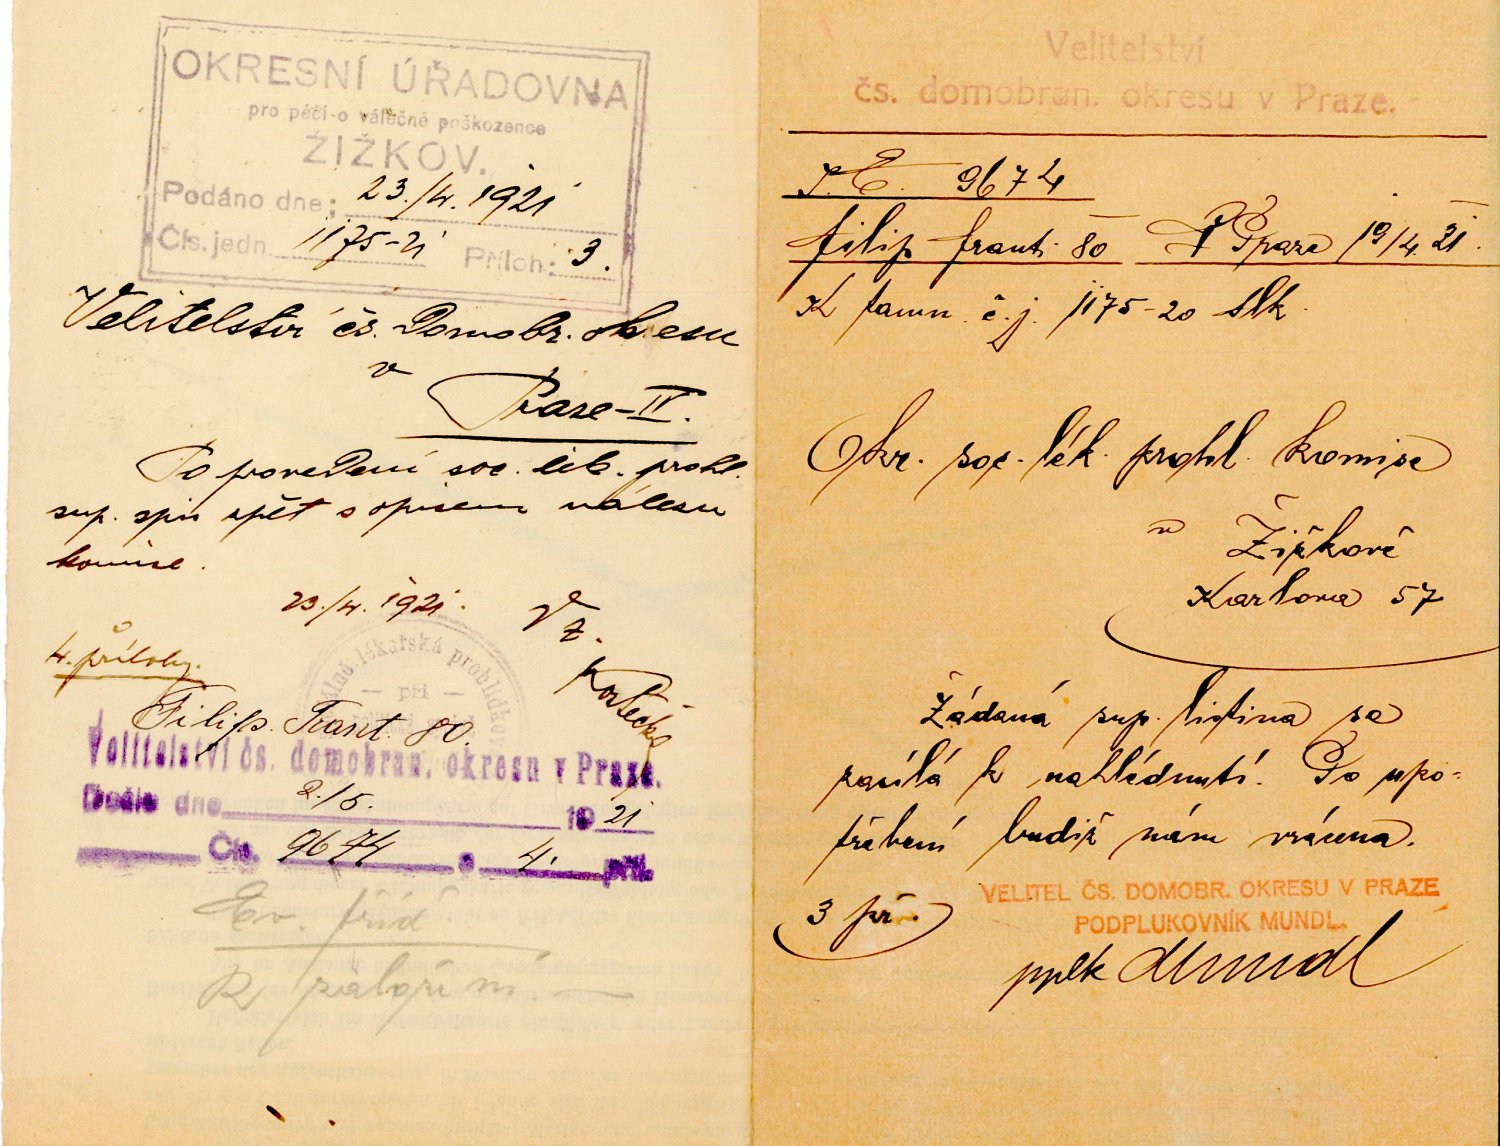 OKRESNÍ ÚŘADOVNA
pro péči o válečné poškozence
ŽIŽKOV.
Podáno dne: 23./4. 1921
Čís. jedn. 1175-21 Příloh: 3.
Velitelství čs. Domobr. okresu
v
Praze-II.
Po provedení soc. lék. prohl.
sup. spis zpět s opisem nálezu
komise.
23./4. 1921.
Vz.
4. přílohy.
sociálně-lékařská prohlídková
— při —
Filip. Frant. 80.
Velitelství čs. domobran. okresu v Praze.
Došlo dne 2./5. 1921
Čís. 9674 s 4. příl.
Ev. říd.
K založení —
Velitelství
čs. domobran. okresu v Praze.
9674
Filip Frant. 80 V Praze 19/4. 21.
K tamn. č.j. 1175-20
Okr. soc. lék. prohl. komise
v Žižkově
Karlova 57
Žádaná sup. listina se
zasílá k nahlédnutí. Po upo-
třebení budiž nám vrácena.
3 př.
VELITEL ČS. DOMOBR. OKRESU V PRAZE
PODPLUKOVNÍK MUNDL.
pplk Mundl